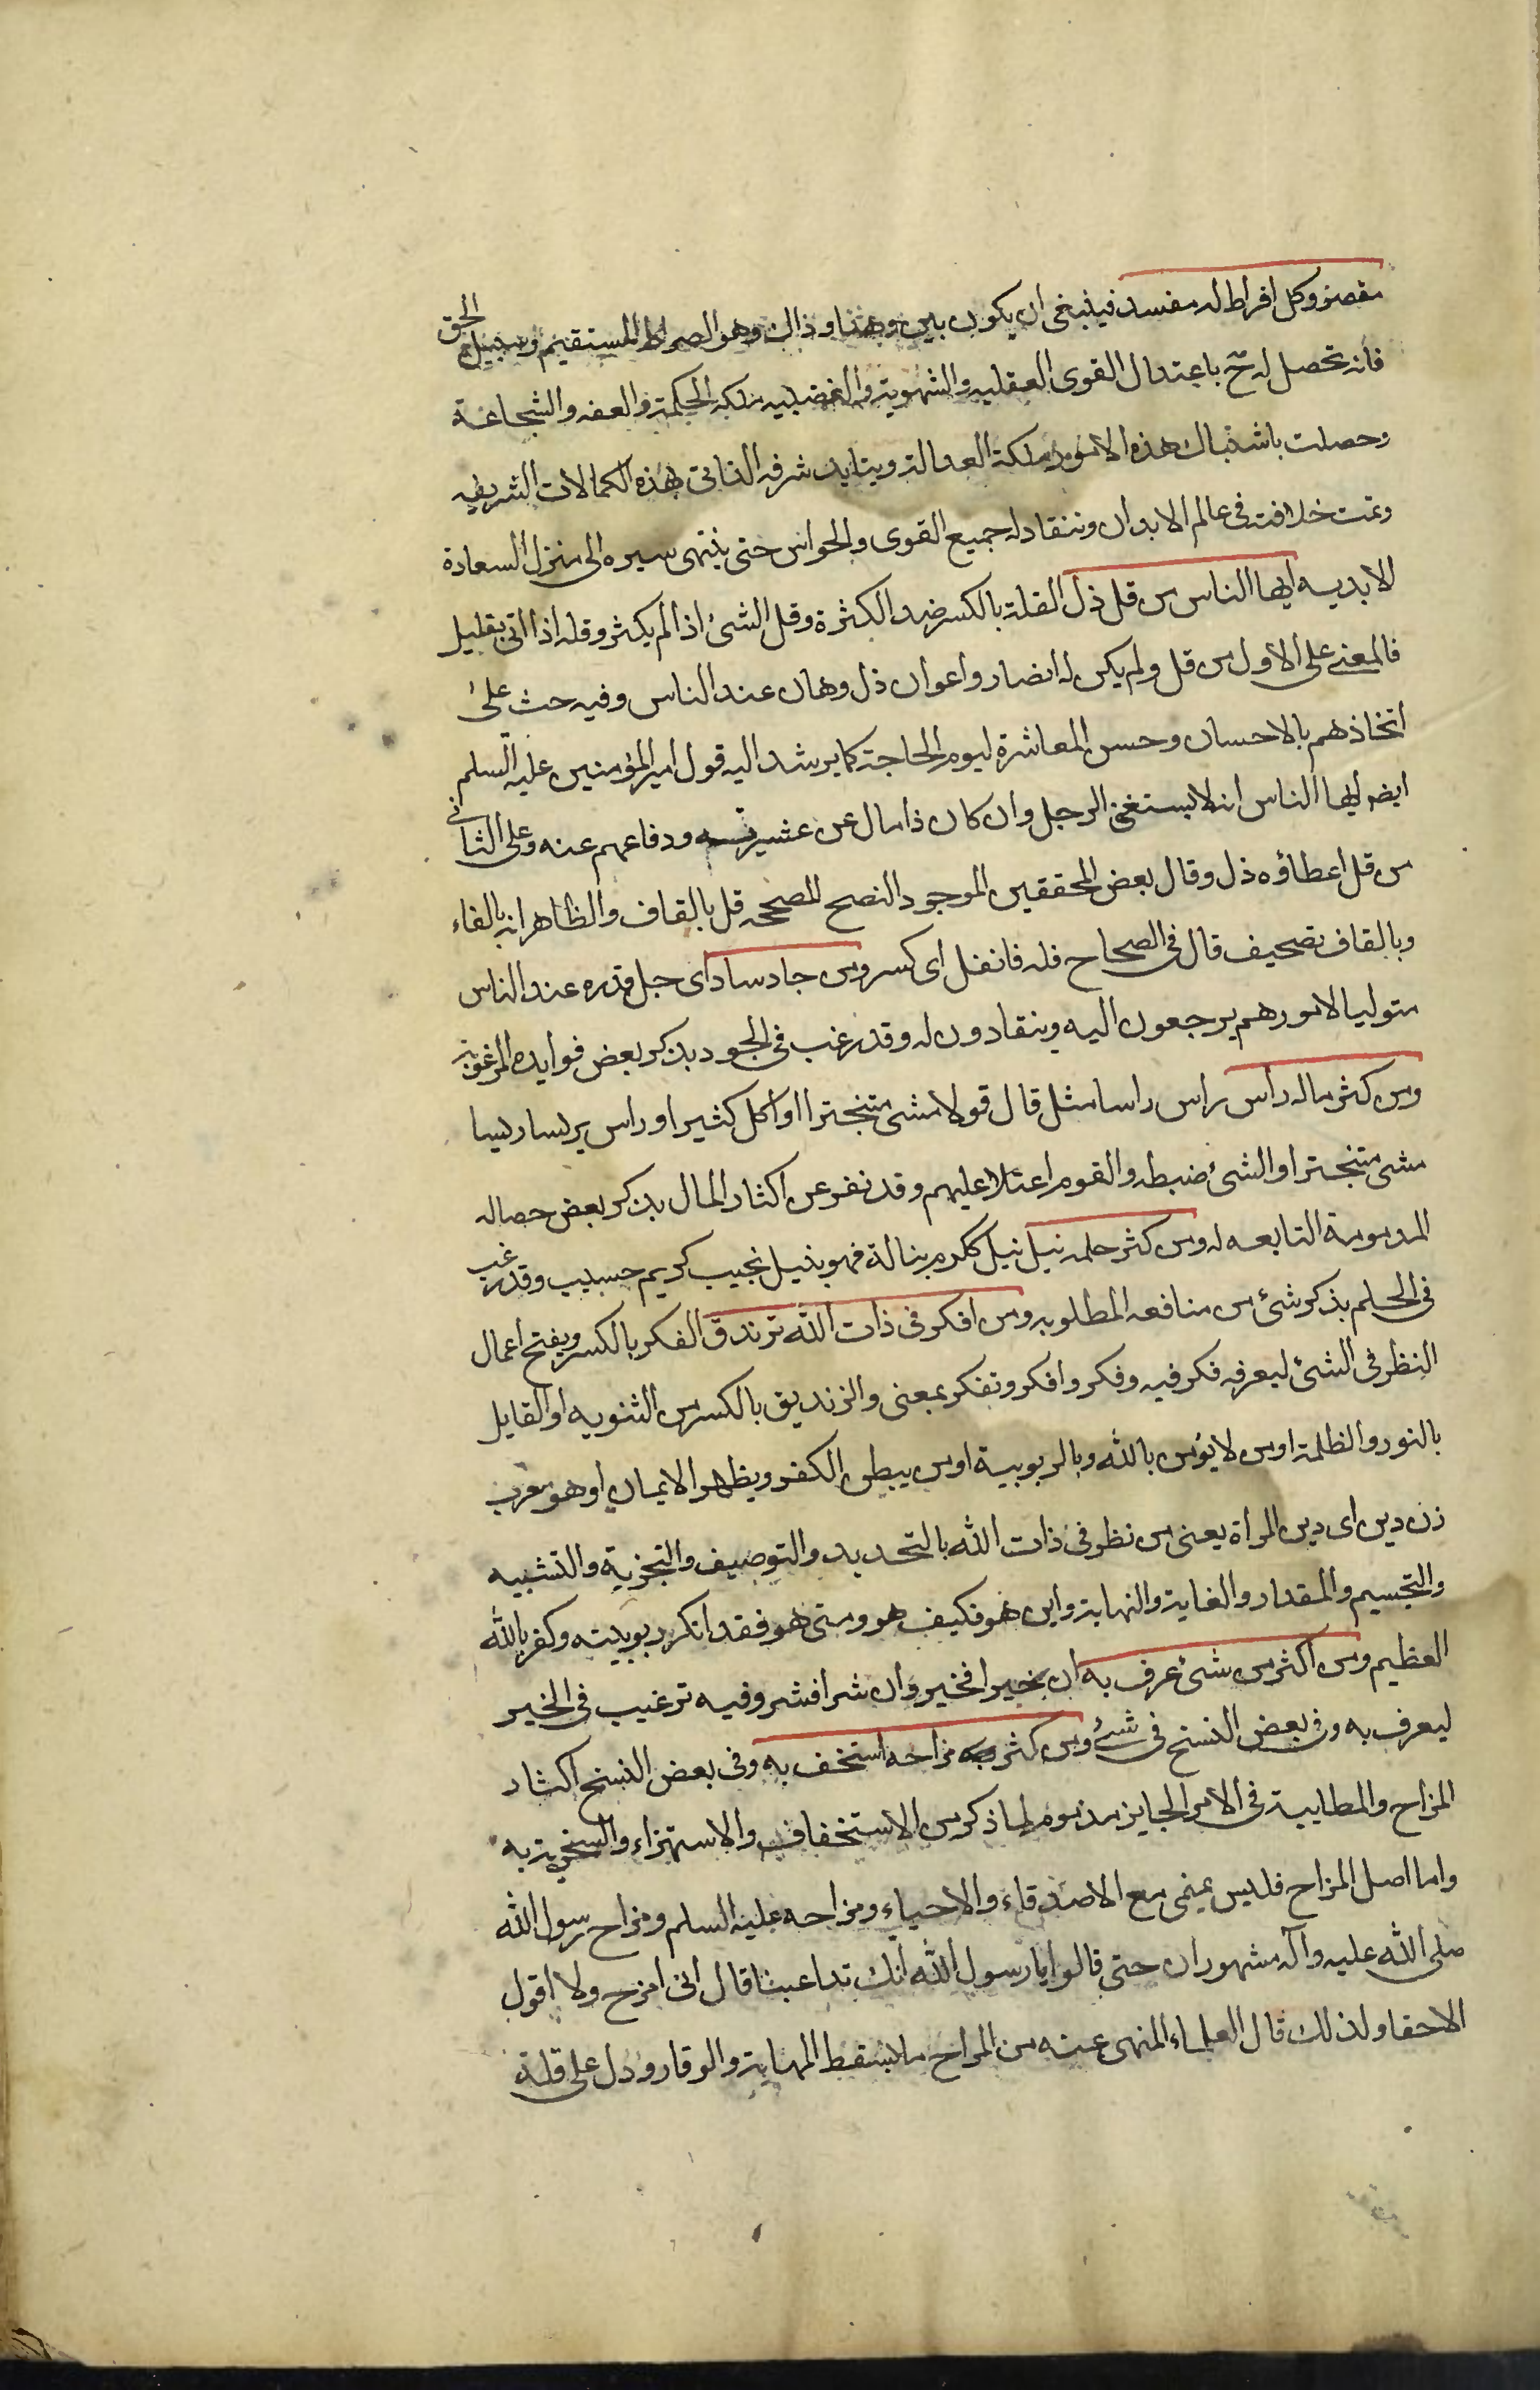 مقصر وكل افراط له مفسد فينبغى ان يكون بين هذا وذاك وهو الصراط المستقيم وسبيل الحق
فانه تحصل له ح باعتدال القوى العقليه والشهوية والغضبيه ملكه الحكمة والعفه والشجاعة
وحصلت باشتباك هذه الامور ملكة العدالة ويتايد شرفه الذاتى بهذه الكمالات الشريفه
وتمت خلافته فى عالم الابدان وتنقاد له جميع القوى والحواس حتى ينتهى سيره الى منزل السعادة
الابديه ايها الناس من قل ذل القلة بالكسر ضد الكثرة وقل الشئ اذا لم يكثر وقله اذا اتى بقليل
فالمعنى على الاول من قل ولم يكن له انصار واعوان ذل وهان عند الناس وفيه حث على
اتخاذهم بالاحسان وحسن المعاشرة ليوم الحاجة كما يرشد اليه قول امير المؤمنين عليه السلم
ايضه ايها الناس انه لا يستغنى الرجل وان كان ذا مال عن عشيرته ودفاعهم عنه وعلى الثانى
من قل اعطاؤه ذل وقال بعض المحققين الموجود النصح المصححه قل بالقاف والظاهر انه بالفاء
وبالقاف تصحيف قال فى الصحاح فله فانفل اى كسر ومن جاد ساد اى جل قدره عند الناس
متوليا لامورهم يرجعون اليه وينقادون له وقد رغب فى الجود بذكر بعض فوايده المرغوبة
ومن كثر ماله راس راس راسا مثل قال قولا مشى متبخترا او اكل كثيرا وراس يريسا ريسا
مشى متبخترا والشئ ضبطه والقوم اعتلا عليهم وقد نفر عن اكثار المال بذكر بعض خصاله
المذمومة التابعه له ومن كثر حلمه نبل نبل ككرم نبالة فهو نبيل نجيب كريم حسيب وقد رغب
فى الحلم بذكر شئ من منافعه المطلوبه ومن افكر فى ذات الله تزندق الفكر بالكسر ويفتح اعمال
النظر فى الشئ ليعرفه فكر فيه وفكر وافكر وتفكر بمعنى والزنديق بالكسر من الثنويه او القايل
بالنور والظلمة او من لا يؤمن بالله وبالربوبية او من يبطن الكفر ويظهر الايمان او هو معرب
زن دين اى دين المراة يعنى من نظر فى ذات الله بالتحديد والتوصيف والتجزية والتشبيه
والتجسيم والمقدار والغاية والنهاية واين هو فكيف هو ومتى هو فقد انكر ربوبيته وكفر بالله
العظيم ومن اكثر من شئ عرف به ان خيرا فخير وان شرا فشر وفيه ترغيب فى الخير
ليعرف به وفى بعض النسخ فى شئ ومن كثر مزاحه استخف به وفى بعض النسخ اكثار
المزاح والمطايبة فى الامر الجايز مذموم لما ذكر من الاستخفاف والاستهزاء والسخرية به
واما اصل المزاح فليس بمنهى مع الاصدقاء والاحياء ومزاحه عليه السلم ومزاح رسول الله
صلى الله عليه وآله مشهوران حتى قالوا يا رسول الله انك تداعبنا قال انى امزح ولا اقول
الا حقا ولذلك قال العلماء المنهى عنه من المزاح ما يسقط المهابة والوقار ودل على قلة